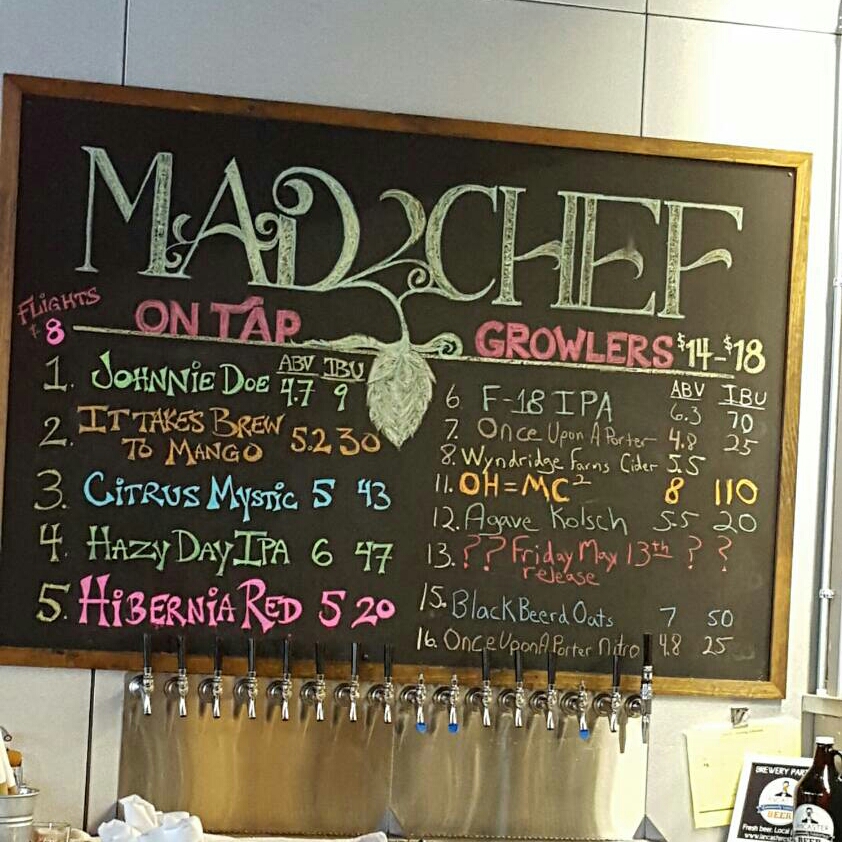 MAD CHEF
FLIGHTS
$8
ON TAP
GROWLERS $14-$18
ABV IBU
1. JOHNNIE DOE 4.7 9
2. IT TAKES BREW
TO MANGO 5.2 30
3. CITRUS MYSTIC 5 43
4. HAZY DAY IPA 6 47
5. HIBERNIA RED 5 20
ABV IBU
6. F-18 IPA 6.3 70
7. Once Upon A Porter 4.8 25
8. Wyndridge Farms Cider 5.5
11. OH=MC² 8 110
12. Agave Kolsch 5.5 20
13. ?? Friday May 13th ? ?
release
15. Black Beerd Oats 7 50
16. Once Upon A Porter Nitro 4.8 25
BREWERY
BEER
Fresh beer. Local
LANCASTER
BEER